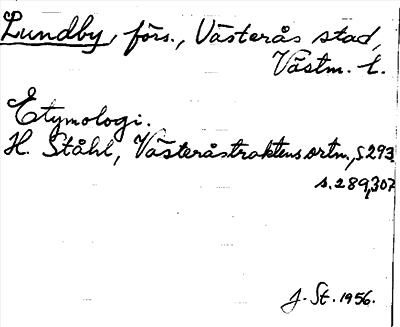 Lundby, förs., Västerås stad,
Västm. l.
Etymologi.
H. Ståhl, Västeråstraktens ortn., s 293
s. 289, 307
J. St. 1956.